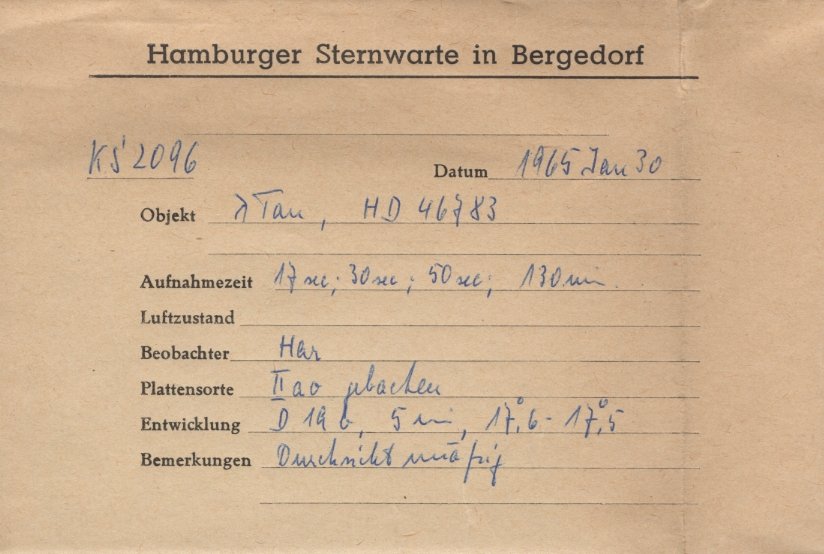 Hamburger Sternwarte in Bergedorf
KS 2096 Datum 1965 Jan 30
Objekt λ Tau, HD 46783
Aufnahmezeit 17 sec; 30 sec; 50 sec; 130 min
Luftzustand
Beobachter Har
Plattensorte II a o gebacken
Entwicklung D 19 b, 5 min, 17°,6 - 17°,5
Bemerkungen Durchsicht mäßig